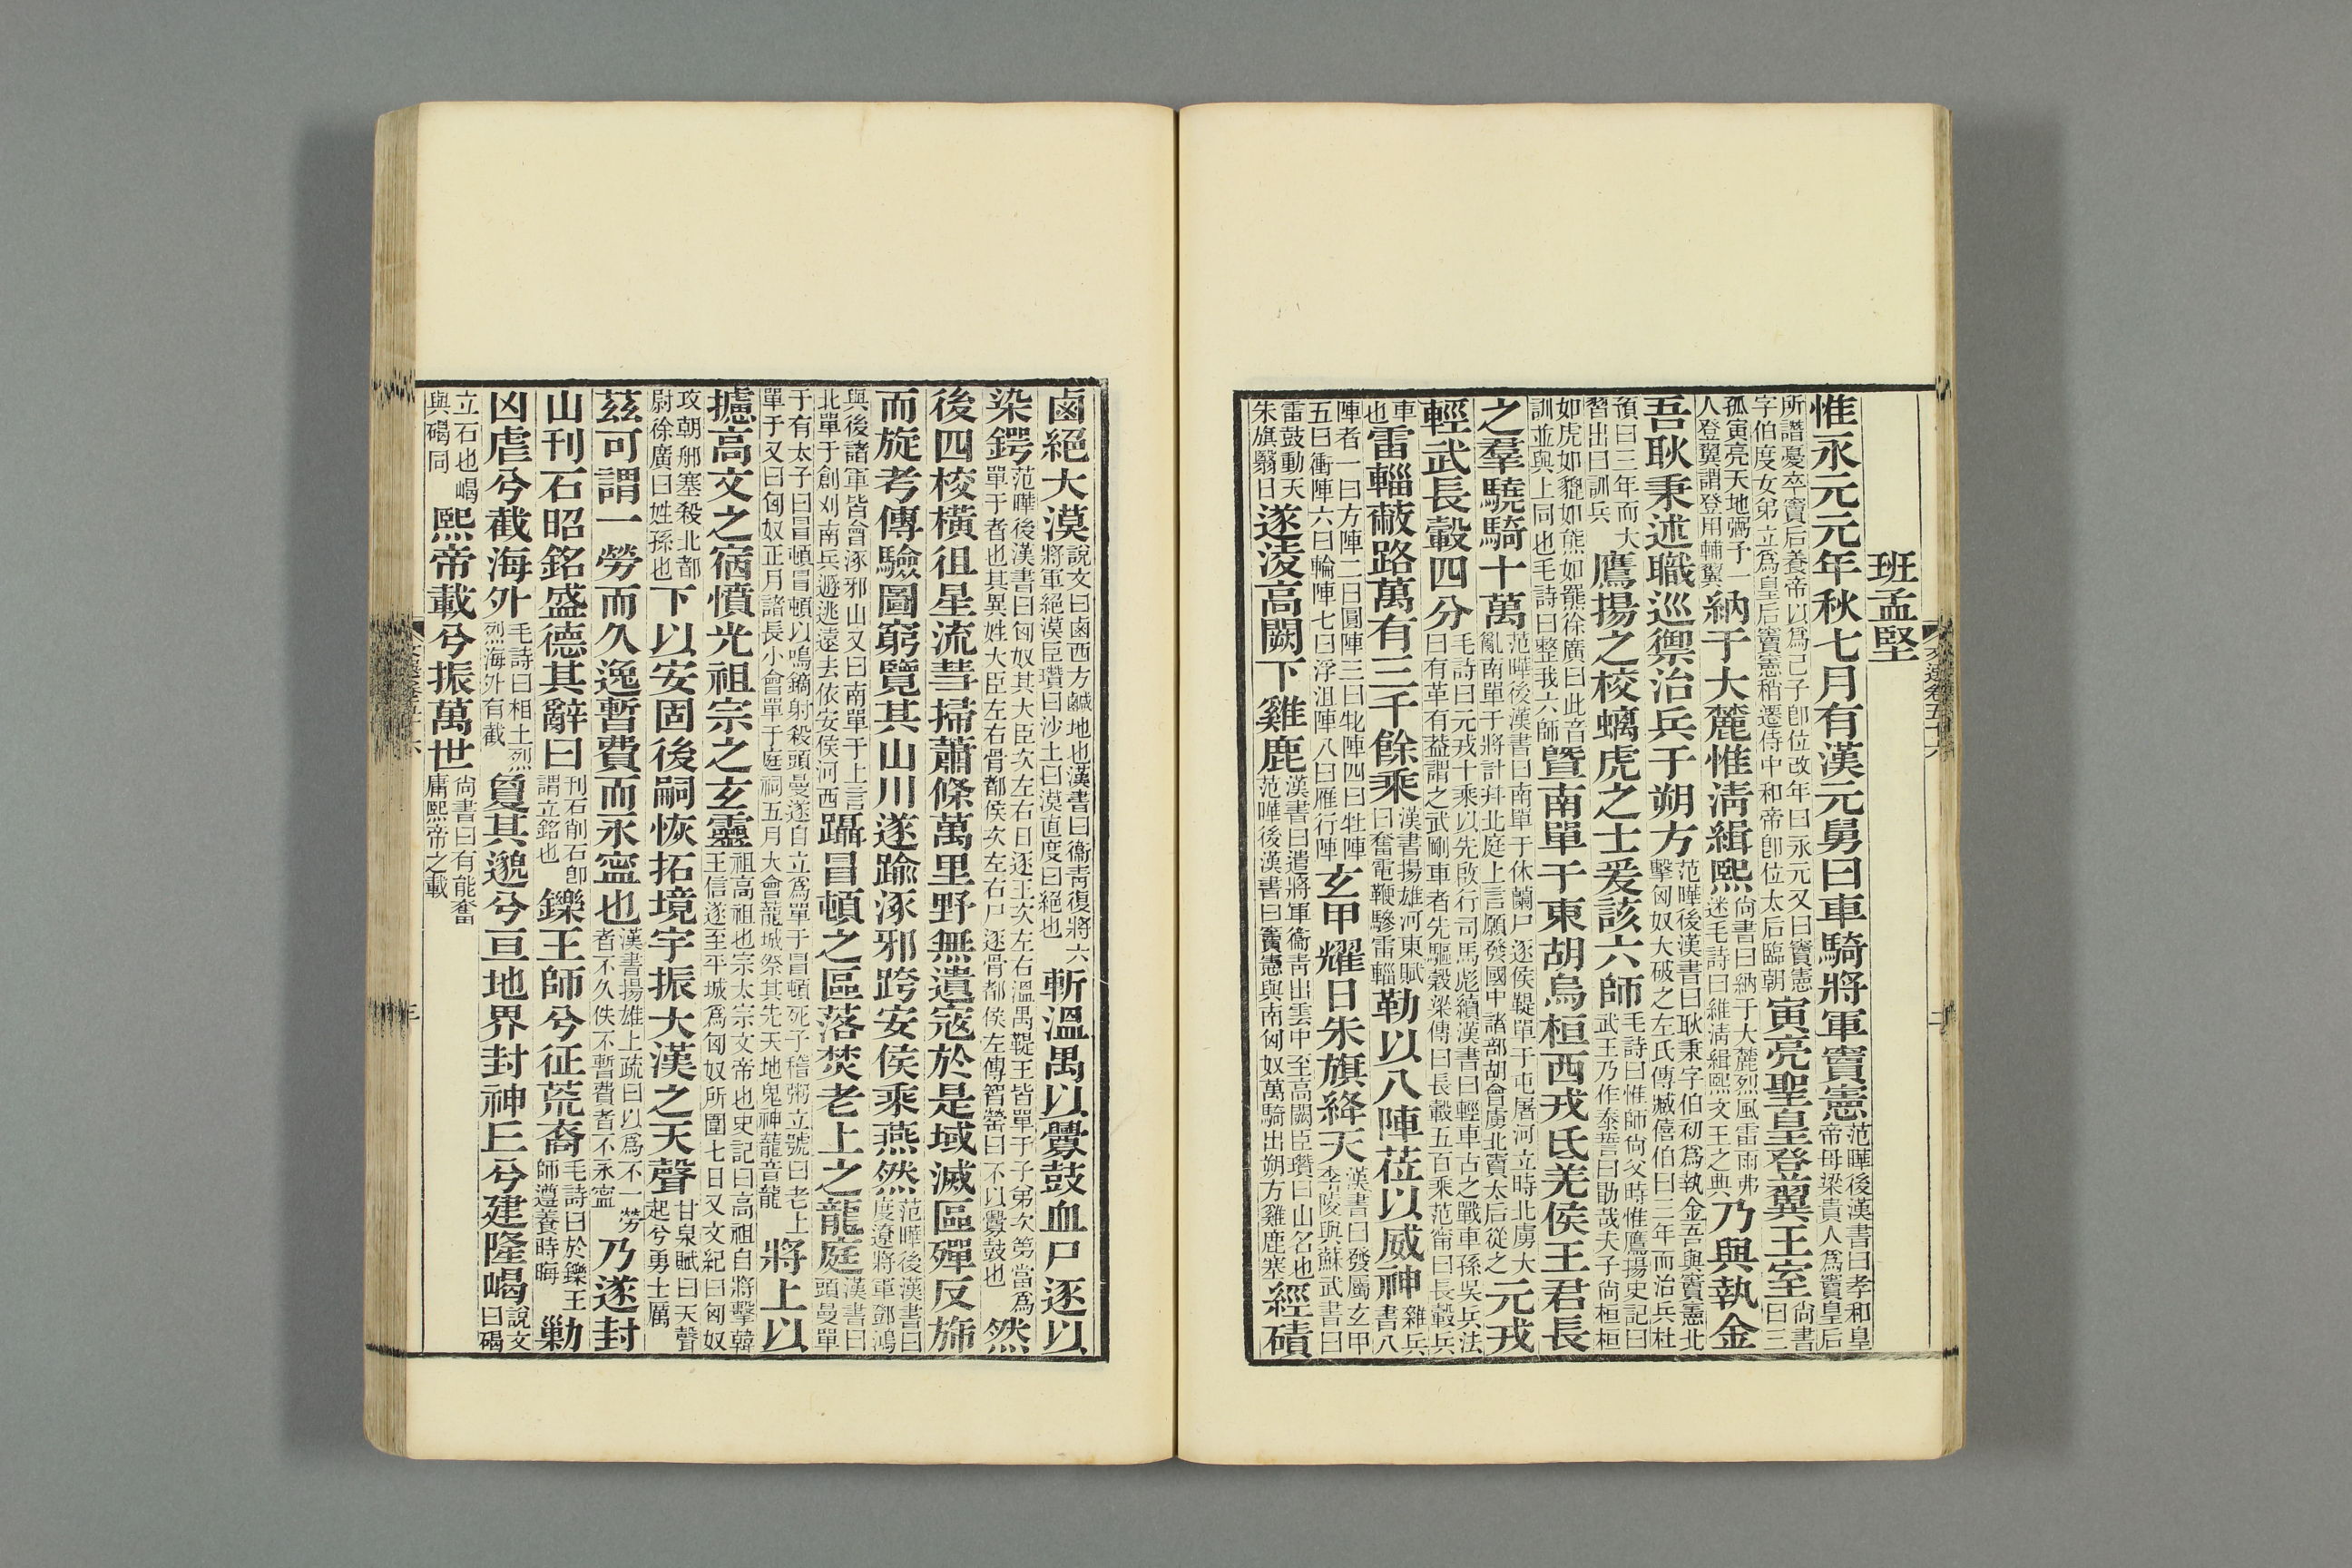 班孟堅
惟永元元年秋七月有漢元舅曰車騎將軍竇憲范曄後漢書曰孝和皇帝母梁貴人爲竇皇后
所譖憂卒竇后養帝以爲己子卽位改年曰永元又曰竇憲字伯度女弟立爲皇后竇憲稍遷侍中和帝卽位太后臨朝寅亮聖皇登翼王室尚書曰三
孤寅亮天地弼予一人登翼謂登用輔翼納于大麓惟清緝熙尚書曰納于大麓烈風雷雨弗迷毛詩曰維清緝熙文王之典乃與執金
吾耿秉述職巡禦治兵于朔方范曄後漢書曰耿秉字伯初爲執金吾與竇憲北擊匈奴大破之左氏傳臧僖伯曰三年而治兵杜
預曰三年而大習出曰訓兵鷹揚之校螭虎之士爰該六師毛詩曰惟師尚父時惟鷹揚史記曰武王乃作泰誓曰勖哉夫子尚桓桓
如虎如貔如熊如羆徐廣曰此音訓並與上同也毛詩曰整我六師暨南單于東胡烏桓西戎氐羌侯王君長
之羣驍騎十萬范曄後漢書曰南單于休蘭尸逐侯鞮單于屯屠河立時北虜大亂南單于將計幷北庭上言願發國中諸部胡會虜北竇太后從之元戎
輕武長轂四分毛詩曰元戎十乘以先啟行司馬彪續漢書曰輕車古之戰車孫吳兵法曰有革有益謂之武剛車者先驅穀梁傳曰長轂五百乘范甯曰長轂兵
車也雷輜蔽路萬有三千餘乘漢書揚雄河東賦曰奮電鞭驂雷輜勒以八陣莅以威神雜兵書八
陣者一曰方陣二曰圓陣三曰牝陣四曰牡陣五曰衝陣六曰輪陣七曰浮沮陣八曰雁行陣玄甲耀日朱旗絳天漢書曰發屬玄甲李陵與蘇武書曰
雷鼓動天朱旗翳日遂淩高闕下雞鹿漢書曰遣將軍衞青出雲中至高闕臣瓚曰山名也范曄後漢書曰竇憲與南匈奴萬騎出朔方雞鹿塞經磧
鹵絕大漠說文曰鹵西方鹹地也漢書曰衞青復將六將軍絕漠臣瓚曰沙土曰漠直度曰絕也斬溫禺以釁鼓血尸逐以
染鍔范曄後漢書曰匈奴其大臣次左右日逐王次左右溫禺鞮王皆單于子弟次第當爲單于者也其異姓大臣左右骨都侯次左右尸逐骨都侯左傳智罃曰不以釁鼓也然
後四校橫徂星流彗掃蕭條萬里野無遺寇於是域滅區殫反斾
而旋考傳驗圖窮覽其山川遂踰涿邪跨安侯乘燕然范曄後漢書曰度遼將軍鄧鴻
與後諸軍皆會涿邪山又曰南單于上言北單于創刈南兵遯逃遠去依安侯河西躡冒頓之區落焚老上之龍庭漢書曰頭曼單
于有太子曰冒頓冒頓以鳴鏑射殺頭曼遂自立爲單于冒頓死子稽粥立號曰老上單于又曰匈奴正月諸長小會單于庭祠五月大會龍城祭其先天地鬼神龍音龍將上以
攄高文之宿憤光祖宗之玄靈祖高祖也宗太宗文帝也史記曰高祖自將擊韓王信遂至平城爲匈奴所圍七日又文紀曰匈奴
攻朝那塞殺北都尉徐廣曰姓孫也下以安固後嗣恢拓境宇振大漢之天聲甘泉賦曰天聲起兮勇士厲
茲可謂一勞而久逸暫費而永寍也漢書揚雄上疏曰以爲不一勞者不久佚不暫費者不永寍乃遂封
山刊石昭銘盛德其辭曰刊石削石卽謂立銘也鑠王師兮征荒裔毛詩曰於鑠王師遵養時晦勦
凶虐兮截海外毛詩曰相土烈烈海外有截夐其邈兮亘地界封神丘兮建隆嵑說文曰碣
立石也嵑與碣同熙帝載兮振萬世尚書曰有能奮庸熙帝之載